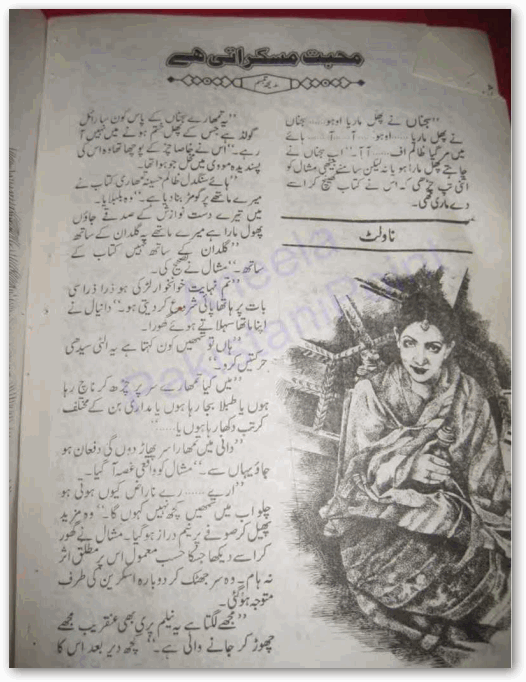 محبت مسکراتی ہے
”سجناں نے پھل ماریا اوہو...... سجناں
نے پھل ماریا...... اوہو...... آ...... آ...... ہائے
میں مر گیا ظالم اف...... آ آ۔“ اب سجناں نے
چاہے پھل مارا ہو یا نہ لیکن سامنے بیٹھی مشال کو
اتنی تپ چڑھی کہ اس نے کتاب کھینچ کر اسے
دے ماری تھی۔
ناولٹ
”یہ تمھارے سجناں کے پاس کون سا پھل
گوند ہے جس کے پھل ختم ہونے میں نہیں آ
رہے۔“ اس نے خاصا چڑ کے پوچھا تھا وہ اس کی
پسندیدہ مووی میں مخل جو ہوا تھا۔
”ہائے سنگدل ظالم حسینہ تمھاری کتاب نے
میرے ماتھے پر گومڑ بنا دیا ہے۔“ وہ بلبلایا۔
میں تیرے دست نوازش کے صدقے جاؤں
پھول مارا ہے میرے ماتھے پہ گلدان کے ساتھ
”گلدان کے ساتھ نہیں کتاب کے
ساتھ۔“ مشال نے تصحیح کی۔
”تم نہایت خونخوار لڑکی ہو ذرا ذرا سی
بات پر ہاتھا پائی شروع کر دیتی ہو۔“ دانیال نے
اپنا ماتھا سہلاتے ہوئے گھورا۔
”ہاں تو تمہیں کون کہتا ہے یہ الٹی سیدھی
حرکتیں کرو۔“
”میں کیا تمھارے سر پر چڑھ کر ناچ رہا
ہوں یا طبلا بجا رہا ہوں یا مداری بن کے مختلف
کرتب دکھا رہا ہوں یا......“
”دانی میں تمھارا سر پھاڑ دوں گی دفعان ہو
جاؤ یہاں سے۔“ مشال کو واقعی غصہ آ گیا۔
”ارے...... رے ناراض کیوں ہوتی ہو
چلو اب میں تمہیں کچھ نہیں کہوں گا۔“ وہ مزید
پھیل کر صوفے پر نیم دراز ہو گیا۔ مشال نے گھور
کر اسے دیکھا جس کا حسب معمول اس پر مطلق اثر
نہ ہوا۔ وہ سر جھٹک کر دوبارہ اسکرین کی طرف
متوجہ ہو گئی۔
”مجھے لگتا ہے یہ نیلم پری بھی عنقریب مجھے
چھوڑ کر جانے والی ہے۔“ کچھ دیر بعد اس کا